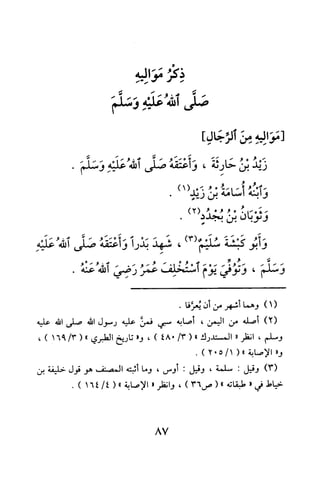 ذِكْرُ مَوَالِيهِ
صَلَّى ٱللهُ عَلَيْهِ وَسَلَّمَ
[مَوَالِيهِ مِنَ ٱلرِّجَالِ]
زَيْدُ بْنُ حَارِثَةَ ، وَأَعْتَقَهُ صَلَّى ٱللهُ عَلَيْهِ وَسَلَّمَ .
وَٱبْنُهُ أُسَامَةُ بْنُ زَيْدٍ(١) .
وَثَوْبَانُ بْنُ بُجْدُدٍ(٢) .
وَأَبُو كَبْشَةَ سُلَيْمٌ(٣) ، شَهِدَ بَدْراً وَأَعْتَقَهُ صَلَّى ٱللهُ عَلَيْهِ
وَسَلَّمَ ، وَتُوُفِّيَ يَوْمَ ٱسْتُخْلِفَ عُمَرُ رَضِيَ ٱللهُ عَنْهُ .
(١) وهما أشهر من أن يُعرَّفا .
(٢) أصله من اليمن ، أصابه سبي فمنَّ عليه رسول الله صلى الله عليه
وسلم ، انظر « المستدرك » ( ٣/ ٤٨٠ ) ، و« تاريخ الطبري » ( ٣/ ١٦٩ ) ،
و« الإصابة » ( ١/ ٢٠٥ ) .
(٣) وقيل : سلمة ، وقيل : أوس ، وما أثبته المصنف هو قول خليفة بن
خياط في « طبقاته » ( ص٣٦ ) ، وانظر « الإصابة » ( ٤/ ١٦٤ ) .
٨٧